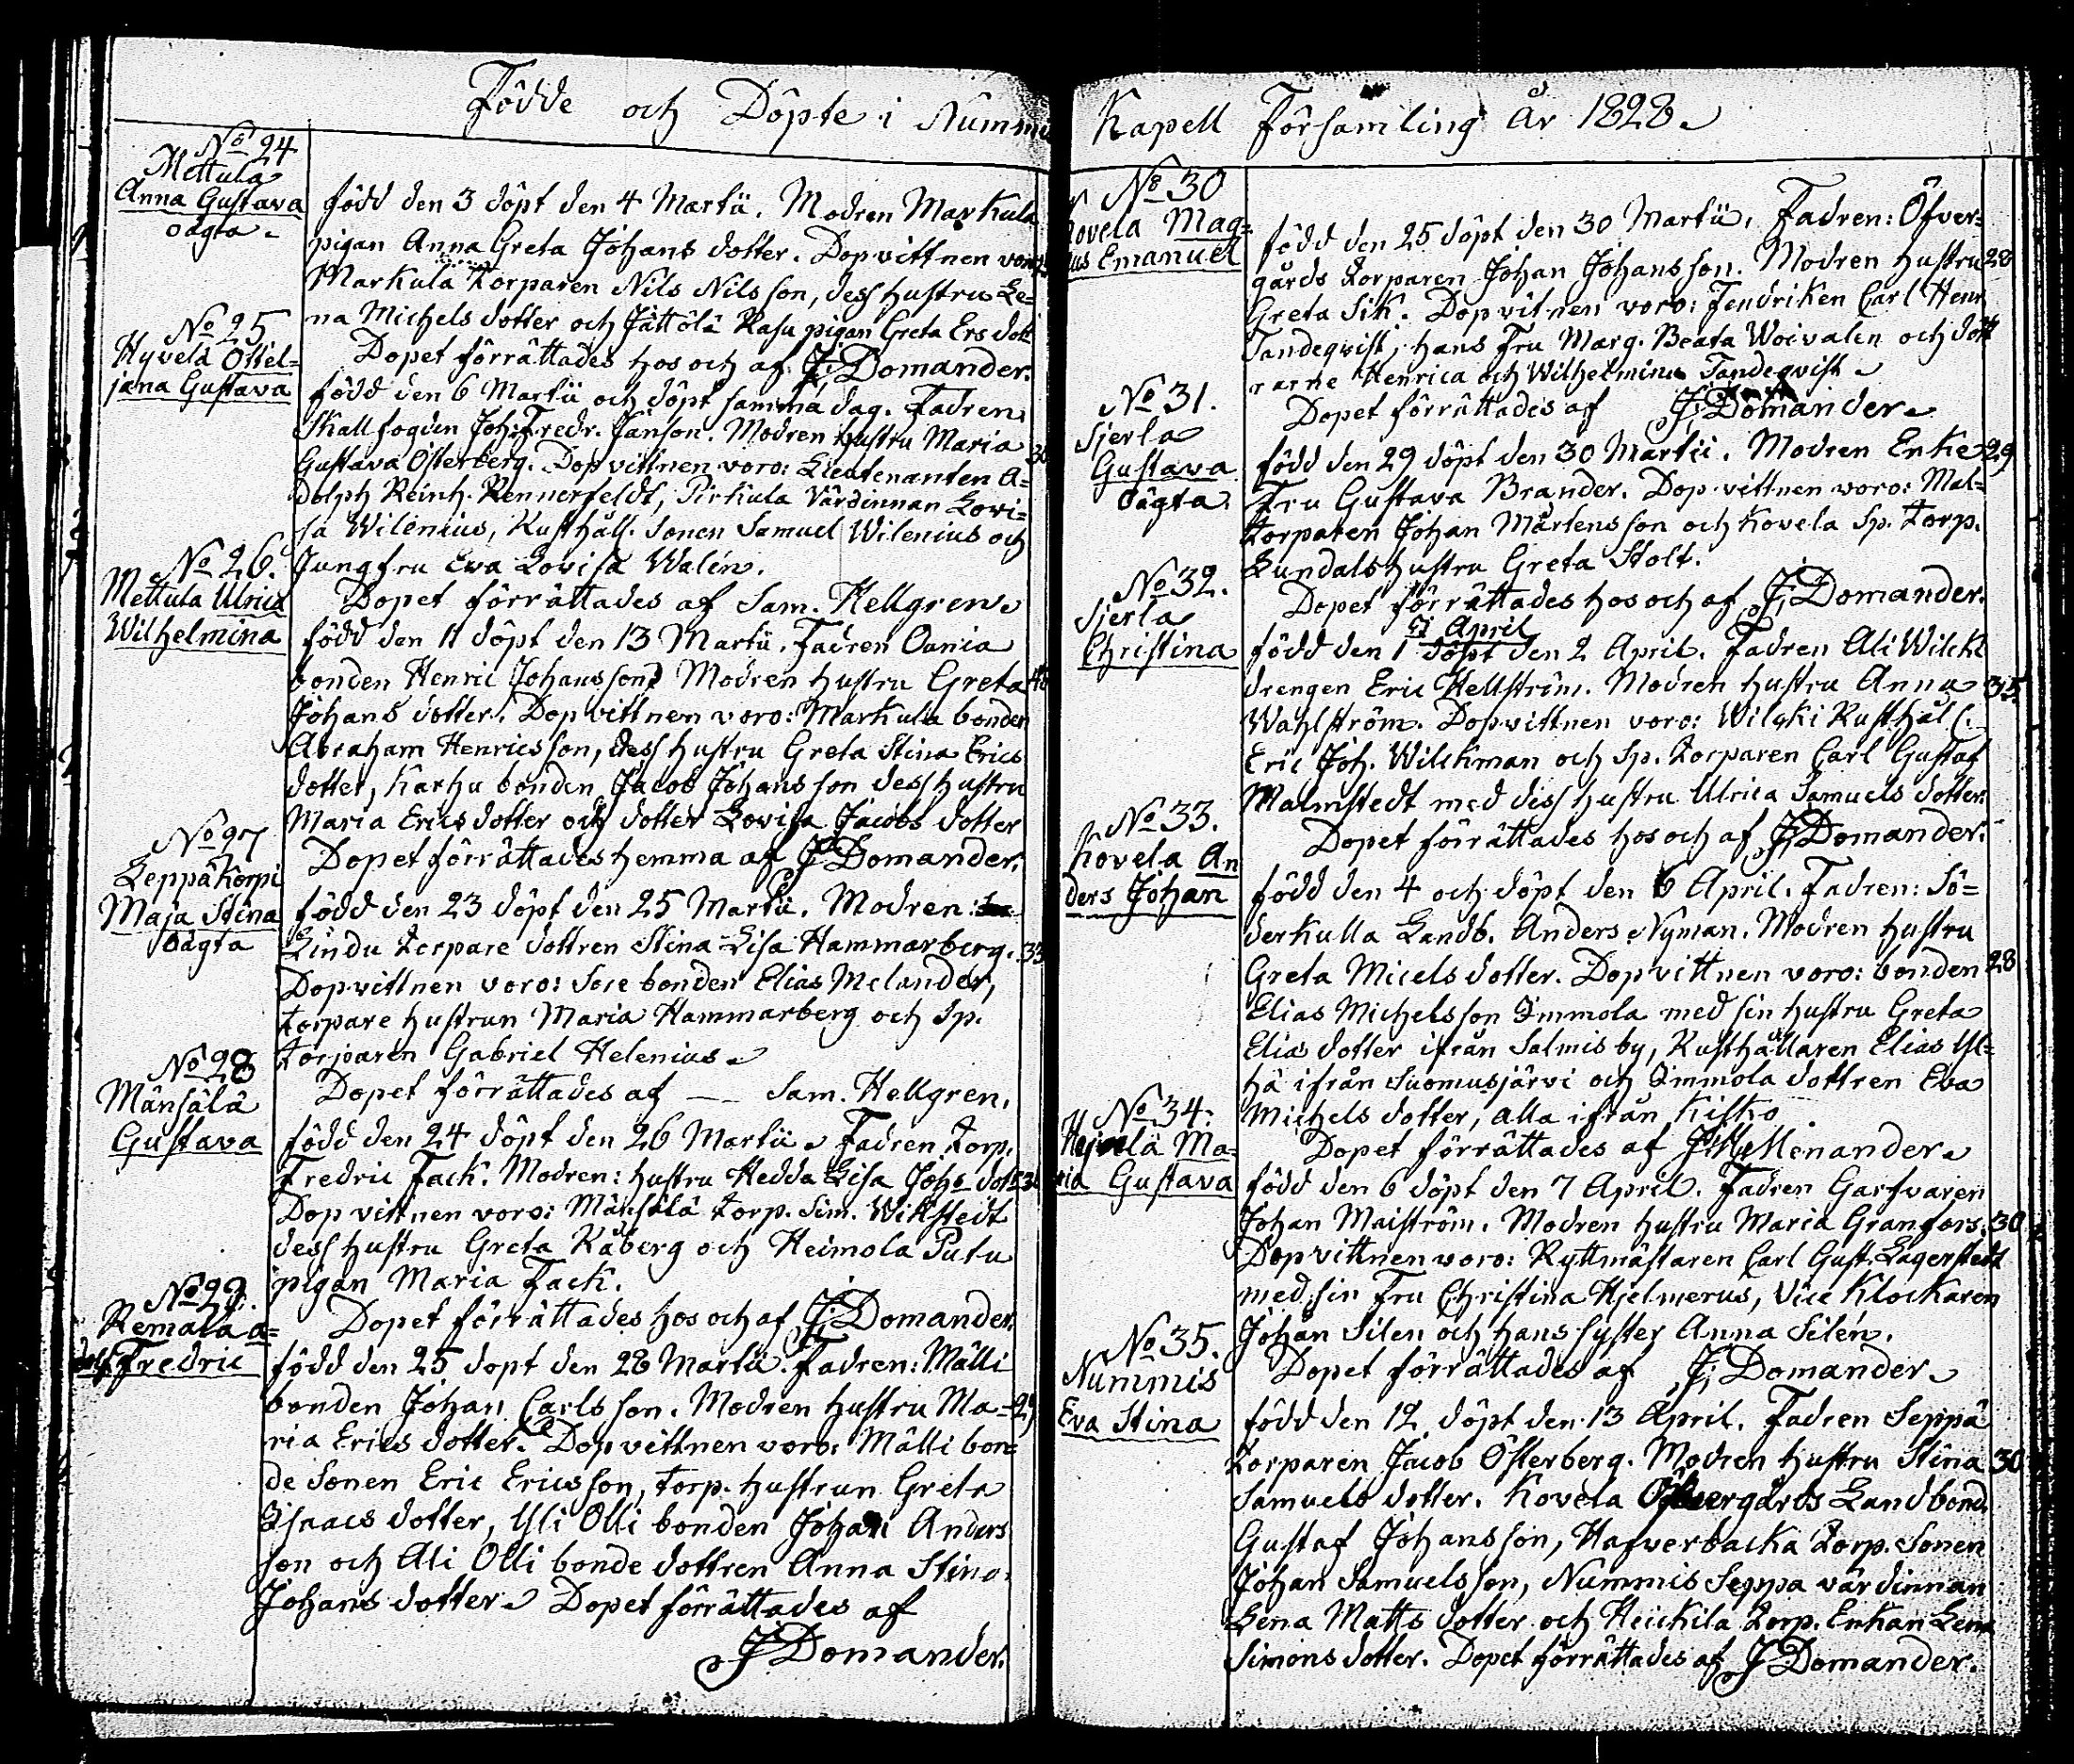 Födde och Döpte i Nummis
No 24
Mettula
Anna Gustava
oägta.
född den 3 döpt den 4 Martii. Modren Markula
pigan Anna Greta Johans dotter. Dopvittnen voro:
Markula torparen Nils Nilsson, dess hustru Le=
na Michels dotter och Jättölä Rasu pigan Greta Ers dott
Dopet förrättades hos och af J: Domander.
No 25
Hyvelä Ottel=
jana Gustava
född den 6 Martii och döpt samma dag. Fadren
Skallfogden Joh: Fredr. Janson. Modren hustru Maria 30
Gustava Österberg. Dopvittnen voro: Lieutenanten A=
dolph Reinh. Rennerfeldt, Pirkula Värdinnan Lovi=
sa Wilenius, Rusthåll. Sonen Samuel Wilenius och
Jungfru Eva Lovisa Walén.
Dopet förrättades af Sam. Hellgren
No 26.
Mettula Ulrica
Wilhelmina
född den 11 döpt den 13 Martii. Fadren Oania
bonden Henric Johansson Modren hustru Greta 40
Johans dotter. Dopvittnen voro: Markula bonden
Abraham Henricsson, dess hustru Greta Stina Erics
dotter, Karhu bonden Jacob Johansson dess hustru
Maria Ericsdotter och dotter Lovisa Jacobs dotter
Dopet förrättades hemma af J Domander.
No 27
Leppäkorpi
Maja Stina
oägta
född den 23 döpt den 25 Martii. Modren:
Lindu torpare dottren Stina Lisa Hammarberg. 33
Dopvittnen voro: Soie bonden Elias Melander,
torpare hustrun Maria Hammarberg och Sp.
torparen Gabriel Helenius
Dopet förrättades af — Sam. Hellgren.
No 28
Mänsälä
Gustava
född den 24 döpt den 26 Martii Fadren torp.
Fredric Fack. Modren: hustru Hedda Lisa Johs dott.
Dopvittnen voro: Mänsälä torp. Sim. Wikstedt
dess hustru Greta Råberg och Heimola Putu
pigan Maria Fack.
Dopet förrättades hos och af J: Domander.
No 29.
Remala a=
dolf Fredric
född den 25 döpt den 28 Martii. Fadren: Mälli
bonden Johan Carlsson. Modren hustru Ma= 29
ria Erics dotter. Dopvittnen voro: Mälli bon=
de Sonen Eric Ericsson, torp. hustrun Greta
Isaacs dotter, Yli Olli bonden Johan Anders
son och Ali Olli bonde dottren Anna Stina
Johans dotter Dopet förrättades af
J Domander.
Kapell Församling År 1828
No 30
Kovela Mag=
nus Emanuel
född den 25 döpt den 30 Martii, Fadren: Öfver=
gårds torparen Johan Johansson. Modren hustru 28
Greta Sik. Dopvitnen voro: Fendriken Carl Henr.
Tandeqvist, hans Fru Marg. Beata Woivalen och dött
rarne Henrica och Wilhelmina Tandeqvist
Dopet förrättades af J: Domander
No 31.
Sjerla
Gustava
Oägta.
född den 29 döpt den 30 Martii. Modren Enke 29
Fru Gustava Brander. Dopvittnen voro: Mal=
torparen Johan Mårtensson och Kovela Sp. torp.
Lundals hustru Greta Stolt.
Dopet förrättades hos och af J: Domander.
No 32.
Sjerla
Christina
April
född den 1 döpt den 2 April. Fadren Ali Wilcki
drengen Eric Hellström. Modren hustru Anna 35
Wahlström. Dopvittnen voro: Wilcki Rusthål(.
Eric Joh. Wilckman och Sp. torparen Carl Gustaf
Malmstedt med dess hustru Ulrica Samuels dotter.
Dopet förrättades hos och af J: Domander.
No 33.
Kovela An
ders Johan
född den 4 och döpt den 6 April. Fadren: Sö=
derkulla Landb. Anders Nyman. Modren hustru
Greta Micels dotter. Dopvittnen voro: bonden 28
Elias Michelsson Immola med sin hustru Greta
Elias dotter ifrån Salmis by, Rusthållaren Elias Yl=
hä ifrån Suomusjärvi och Immola dottren Eva
Michels dotter, alla ifrån Kisko
Dopet förrättades af Menander
No 34.
Hejvelä Ma=
ria Gustava
född den 6 döpt den 7 April. Fadren Garfvaren
Johan Maiström. Modren hustru Maria Granfors. 30
Dopvittnen voro: Ryttmästaren Carl Gust. Lagerstedt
med sin Fru Christina Hjelmerus, Vice Klockaren
Johan Silen och hans syster Anna Silén.
Dopet förrättades af J: Domander
No 35.
Nummis
Eva Stina
född den 12 döpt den 13 April. Fadren Seppä
torparen Jacob Österberg. Modren hustru Stina 30
Samuels dotter. Kovela Öfvergårds Landbond.
Gustaf Johansson, Hafverbacka torp. Sonen
Johan Samuelsson, Nummis Seppä värdinnan
Lena Matts dotter och Heickila torp. Enkan Lena
Simons dotter. Dopet förrättades af J Domander.